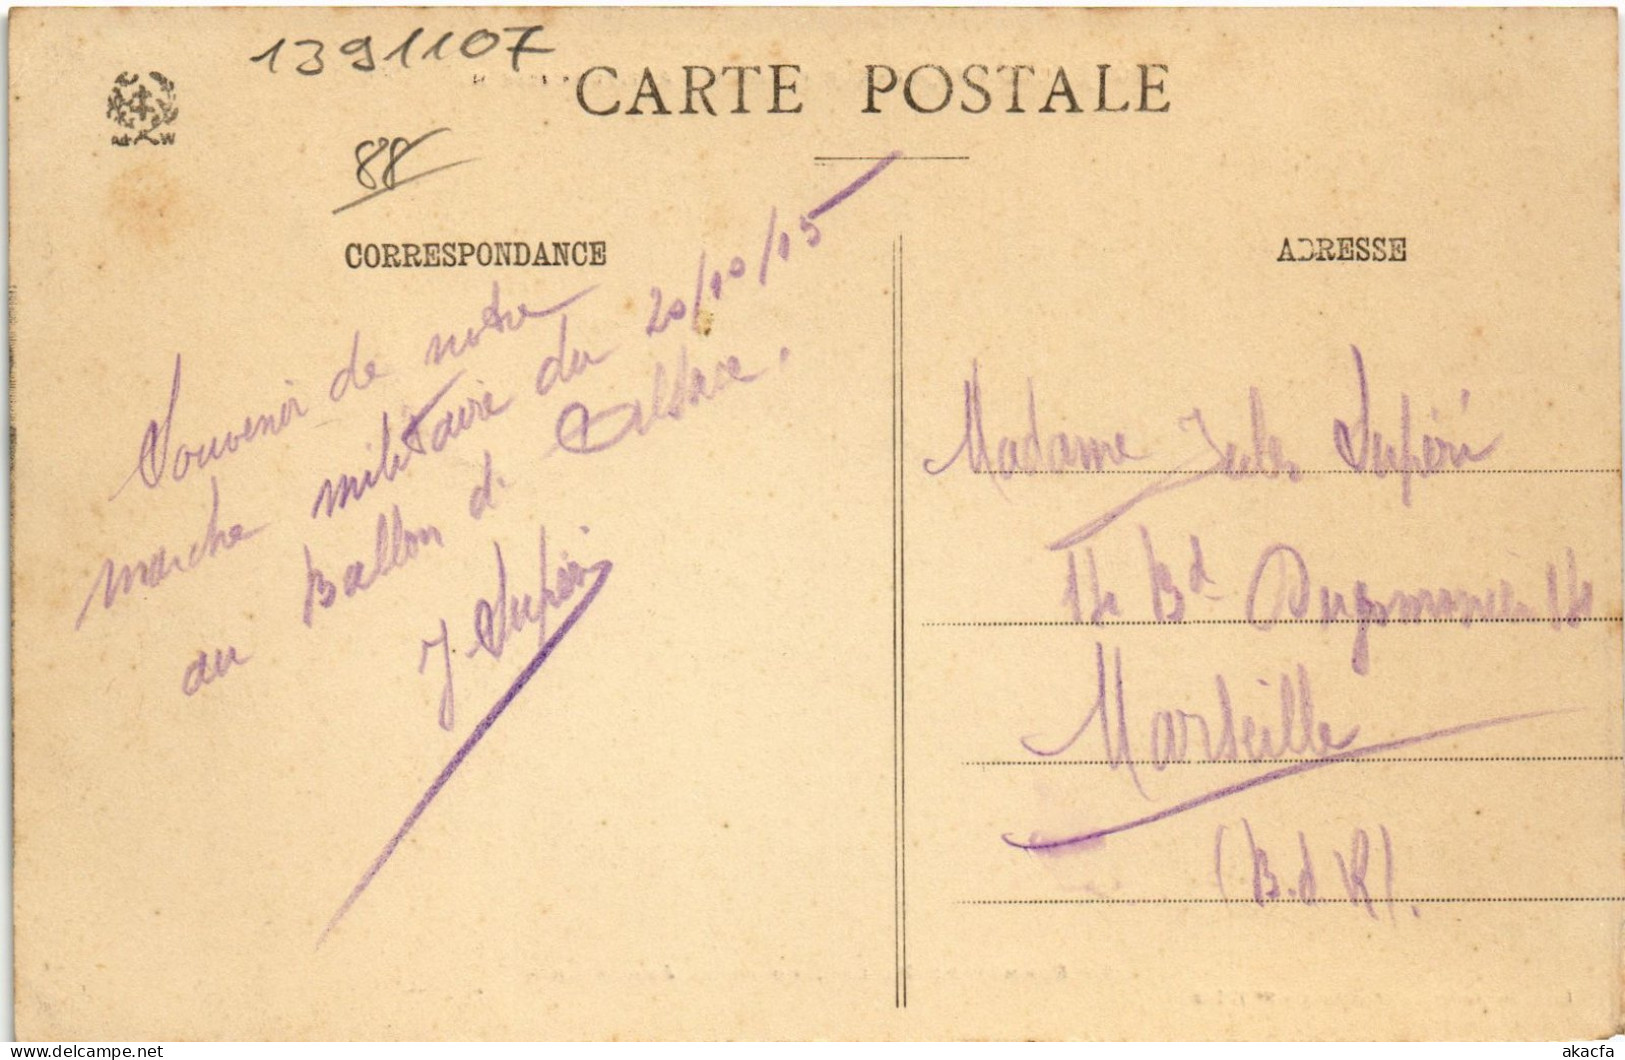 1391107
CARTE POSTALE
88
CORRESPONDANCE
Souvenir de notre
marche militaire du 20/10/15
au Ballon d'Alsace.
J Supéri
ADRESSE
Madame Jules Supéri
14 Bd Dugommier 14
Marseille
(B.d.R).
akacfa